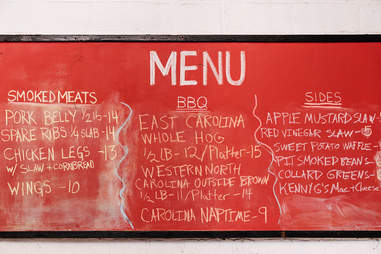 MENU
SMOKED MEATS
PORK BELLY 1/2 lb - 14
SPARE RIBS 1/4 SLAB - 14
CHICKEN LEGS - 13
W/ SLAW + CORNBREAD
WINGS - 10
BBQ
EAST CAROLINA
WHOLE HOG
1/2 LB - 12/Platter - 15
WESTERN NORTH
CAROLINA OUTSIDE BROWN
1/2 LB - 11/Platter - 14
CAROLINA NAPTIME - 9
SIDES
APPLE MUSTARD SLAW -
RED VINEGAR SLAW -
SWEET POTATO WAFFLE -
PIT SMOKED BEANS -
COLLARD GREENS -
KENNIG'S Mac + Cheese